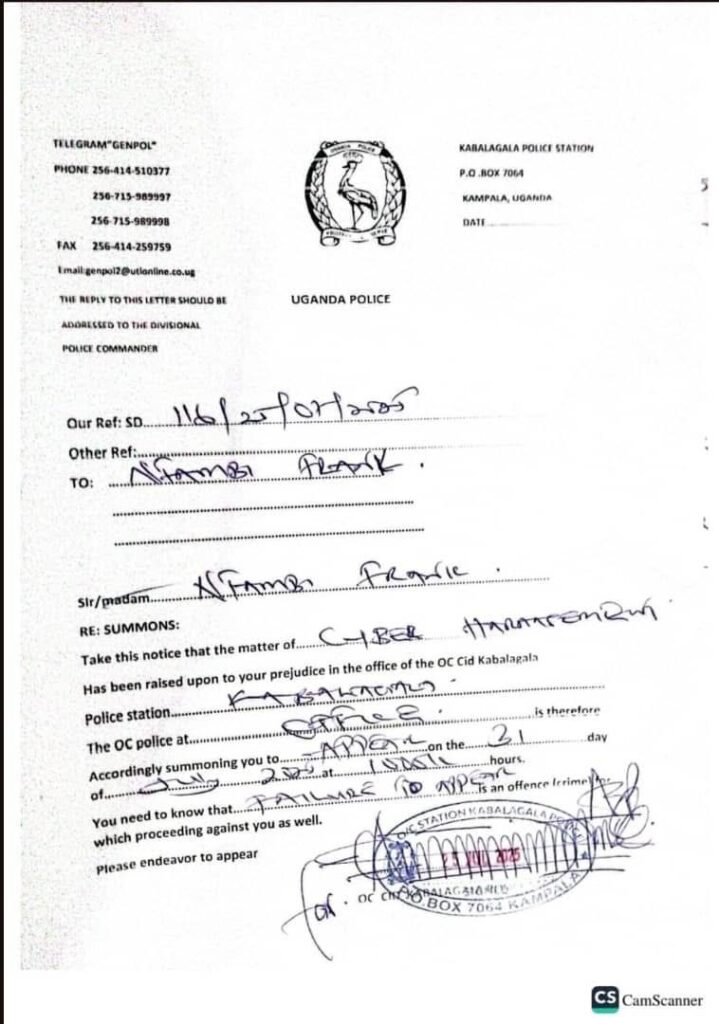 TELEGRAM"GENPOL"
PHONE 256-414-510377
256-715-989997
256-715-989998
FAX 256-414-259759
Email:genpol2@utlonline.co.ug
THE REPLY TO THIS LETTER SHOULD BE
ADDRESSED TO THE DIVISIONAL
POLICE COMMANDER
UGANDA POLICE
KABALAGALA POLICE STATION
P.O .BOX 7064
KAMPALA, UGANDA
DATE
UGANDA POLICE
Our Ref: SD 116/25/07/2025
Other Ref:
TO: NTAMBI FRANK.
Sir/madam NTAMBI FRANK.
RE: SUMMONS:
Take this notice that the matter of CYBER HARASSMENT
Has been raised upon to your prejudice in the office of the OC Cid Kabalagala
Police station KABALAGALA.
The OC police at OFFICE. is therefore
Accordingly summoning you to APPEAR on the 31 day
of July at hours.
You need to know that FAILURE TO APPEAR is an offence (crime) for
which proceeding against you as well.
Please endeavor to appear
O/C STATION KABALAGALA
25 JUL 2025
P.O. BOX 7064 KAMPALA
For. OC CID KABALAGALA
CS CamScanner